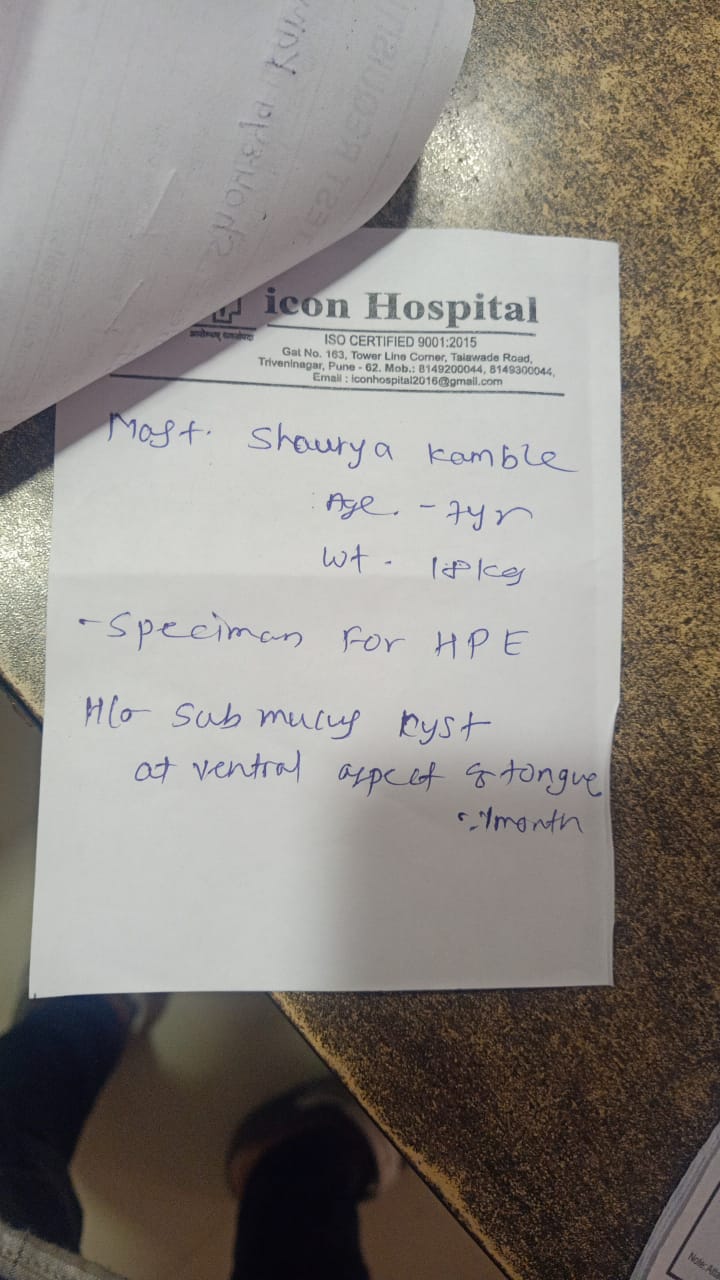 TEST REQUISITI
icon Hospital
आरोग्यम् धनसंपदा
ISO CERTIFIED 9001:2015
Gat No. 163, Tower Line Corner, Talawade Road,
Triveninagar, Pune - 62. Mob.: 8149200044, 8149300044,
Email : iconhospital2016@gmail.com
Mast. Shaurya Kamble
Age. - 7yr
Wt - 18kg
- Speciman For HPE
H/o Sub mucus cyst
at ventral aspect of tongue
1month
Note: